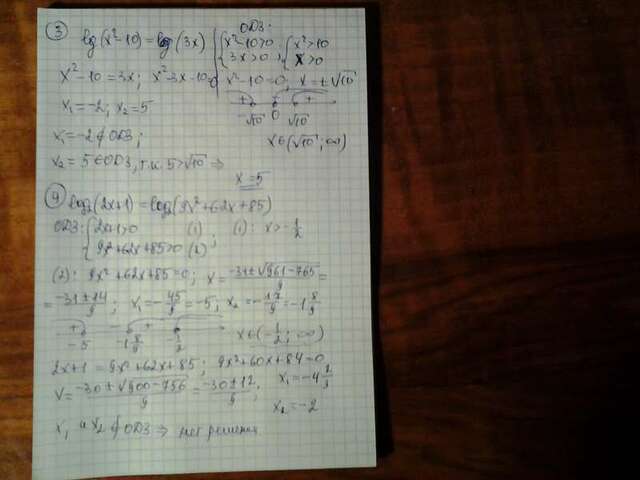 ③ ОДЗ:
lg(x²-10) = lg(3x) { x²-10>0 ; 3x>0 ; { x²>10 x>0
x²-10=3x; x²-3x-10=0 x²-10=0; x=±√10
x₁=-2; x₂=5 + - + -√10 0 √10
x₁=-2∉ОДЗ; x∈(√10; ∞)
x₂=5∈ОДЗ, т.к. 5>√10 ⇒
x=5
④ log₂(2x+1)=log₂(9x²+62x+85)
ОДЗ: { 2x+1>0 (1) ; (1): x>-1/2
9x²+62x+85>0 (2)
(2): 9x²+62x+85=0; x=(-31±√(961-765))/9=
=(-31±14)/9; x₁=-45/9=-5, x₂=-17/9=-1 8/9
+ - + -5 -1 8/9 -1/2 x∈(-1/2; ∞)
2x+1=9x²+62x+85; 9x²+60x+84=0
x=(-30±√(900-756))/9=(-30±12)/9; x₁=-4 2/3
x₂=-2
x₁ и x₂∉ОДЗ ⇒ нет решения